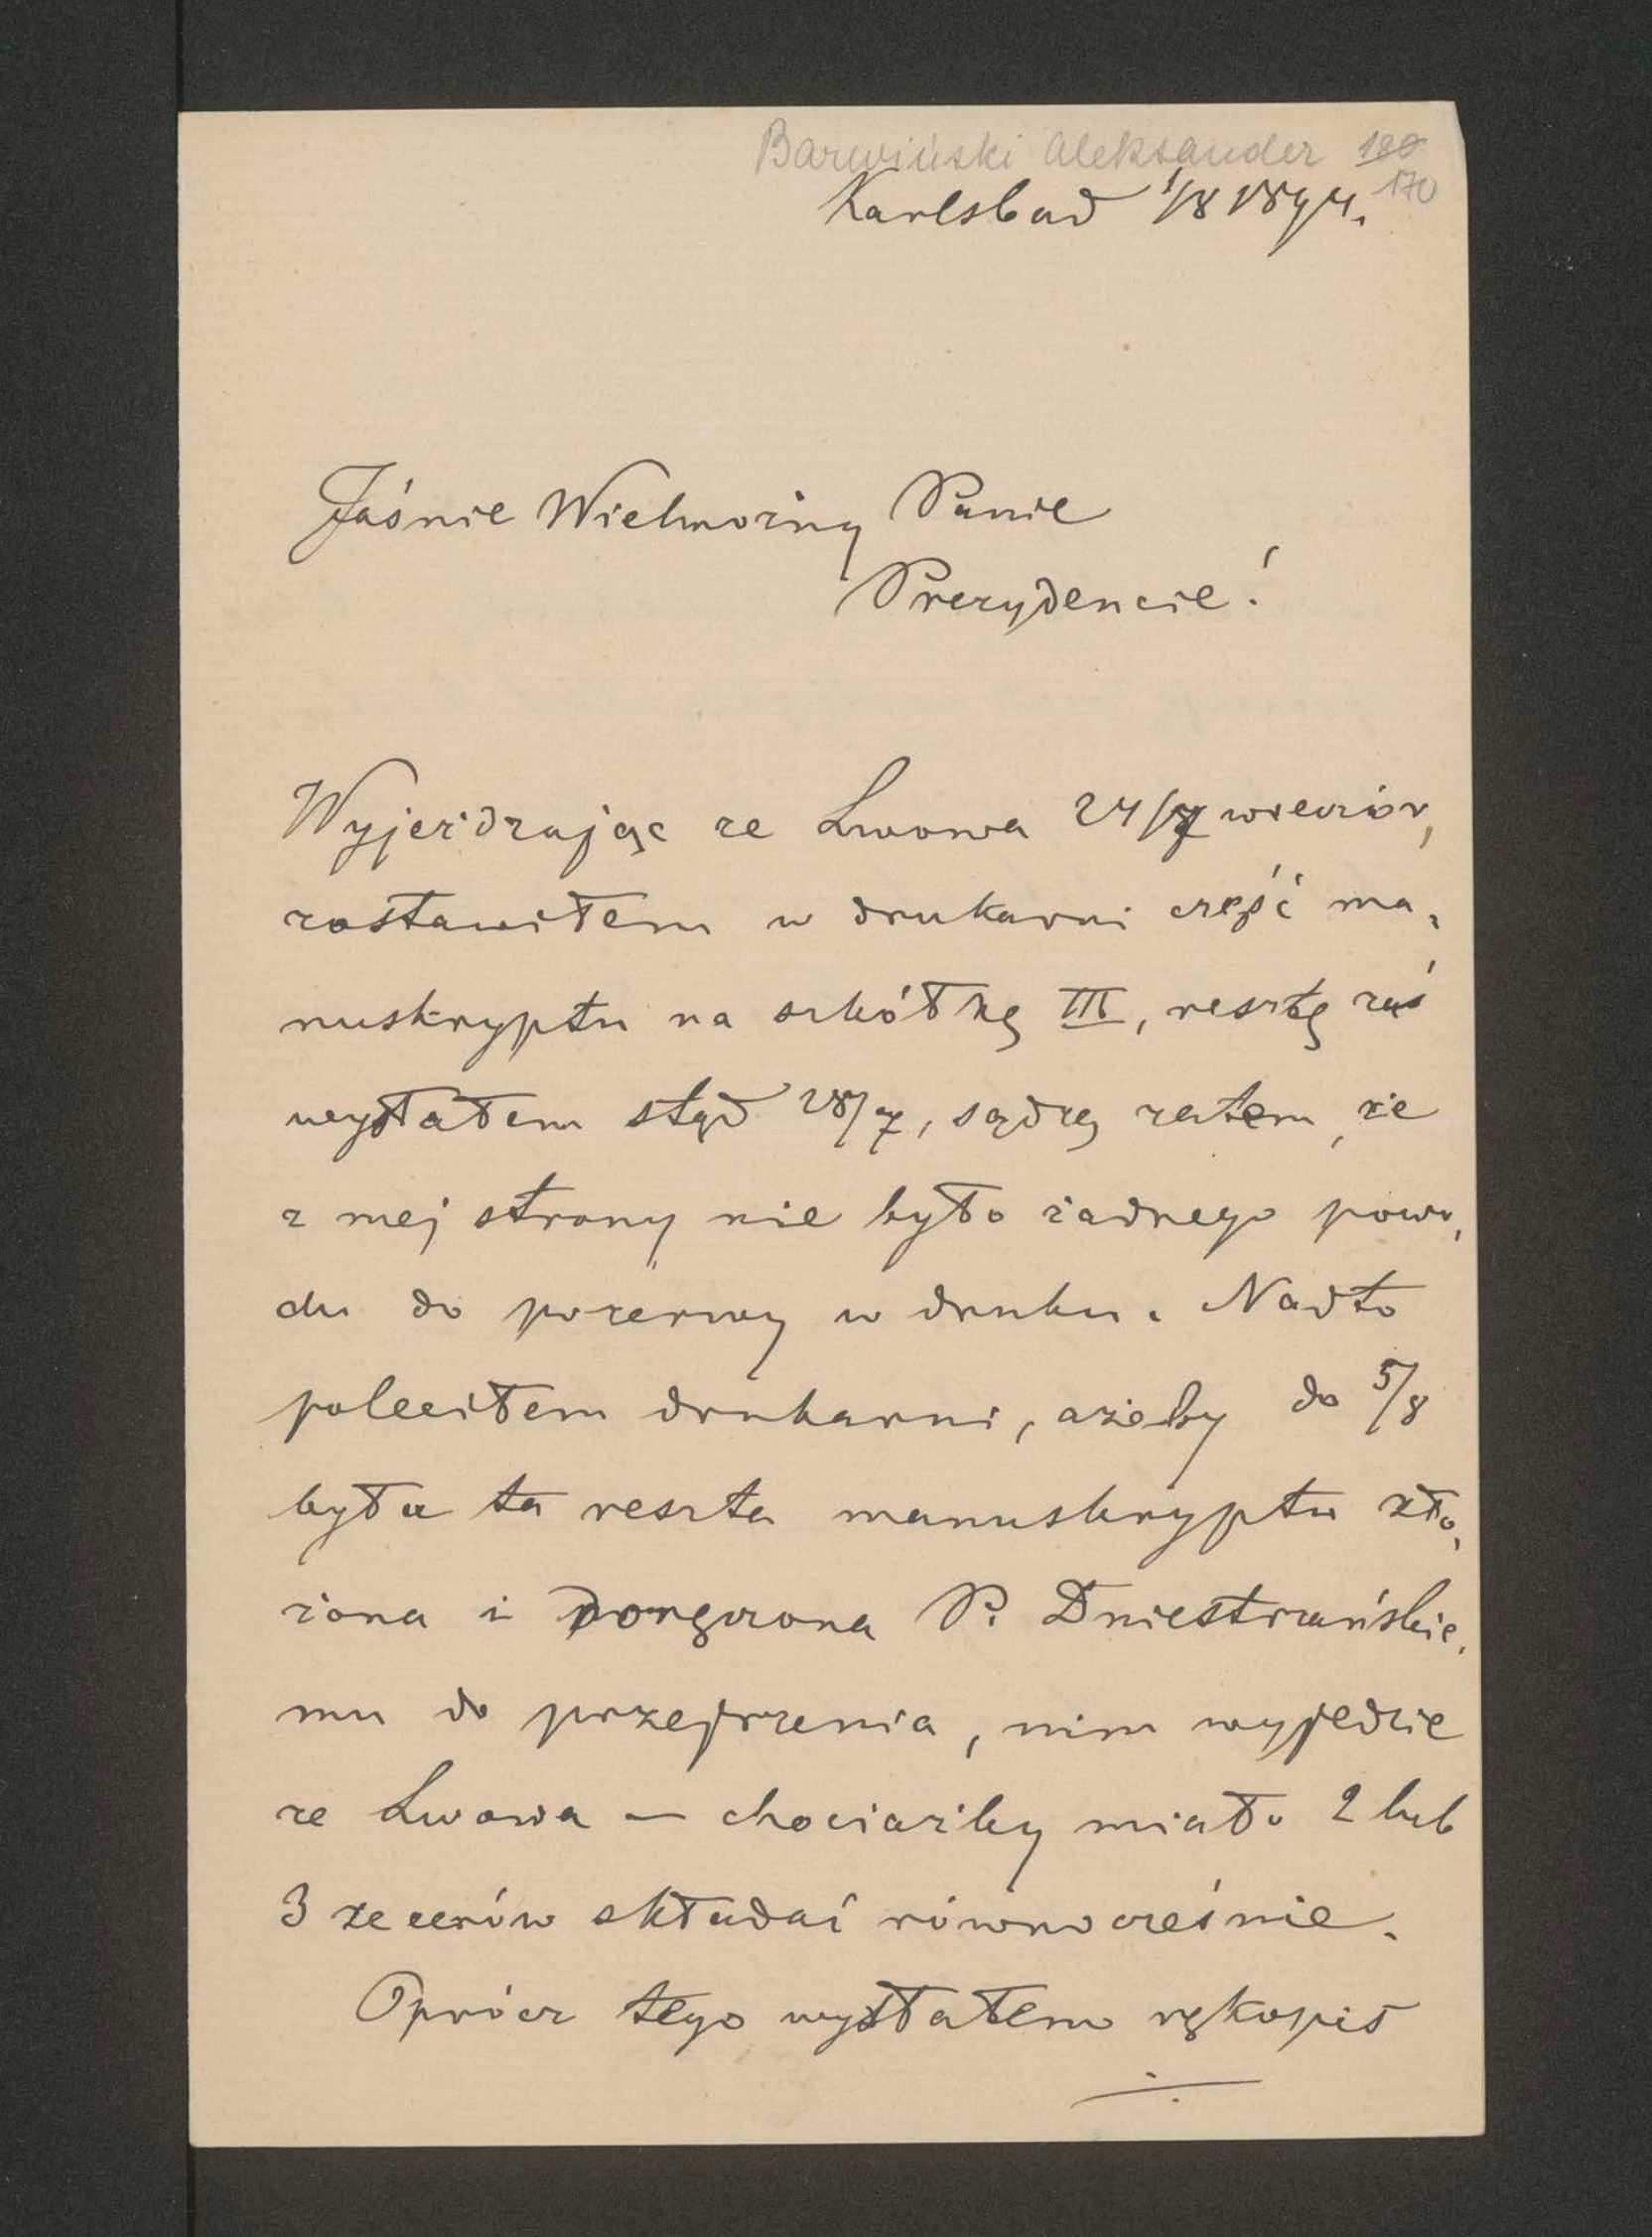 Barwiński Aleksander 180
170
Karlsbad 1/8 1894.
Jaśnie Wielmożny Panie
Prezydencie!
Wyjeżdzając ze Lwowa 24/7 wieczór,
zostawiłem w drukarni część ma,
nuskryptu na szkółkę III, resztę zaś
wysłałem stąd 28/7, sądzę zatem, że
z mej strony nie było żadnego powo,
du do przerwy w druku. Nadto
poleciłem drukarni, ażeby do 5/8
była ta reszta manuskryptu zło,
żona i doręczona P. Dniestrzańskie,
mu do przejrzenia, nim wyjedzie
ze Lwowa — chociażby miało 2 lub
3 zecerów składać równocześnie.
Oprócz tego wysłałem rękopis